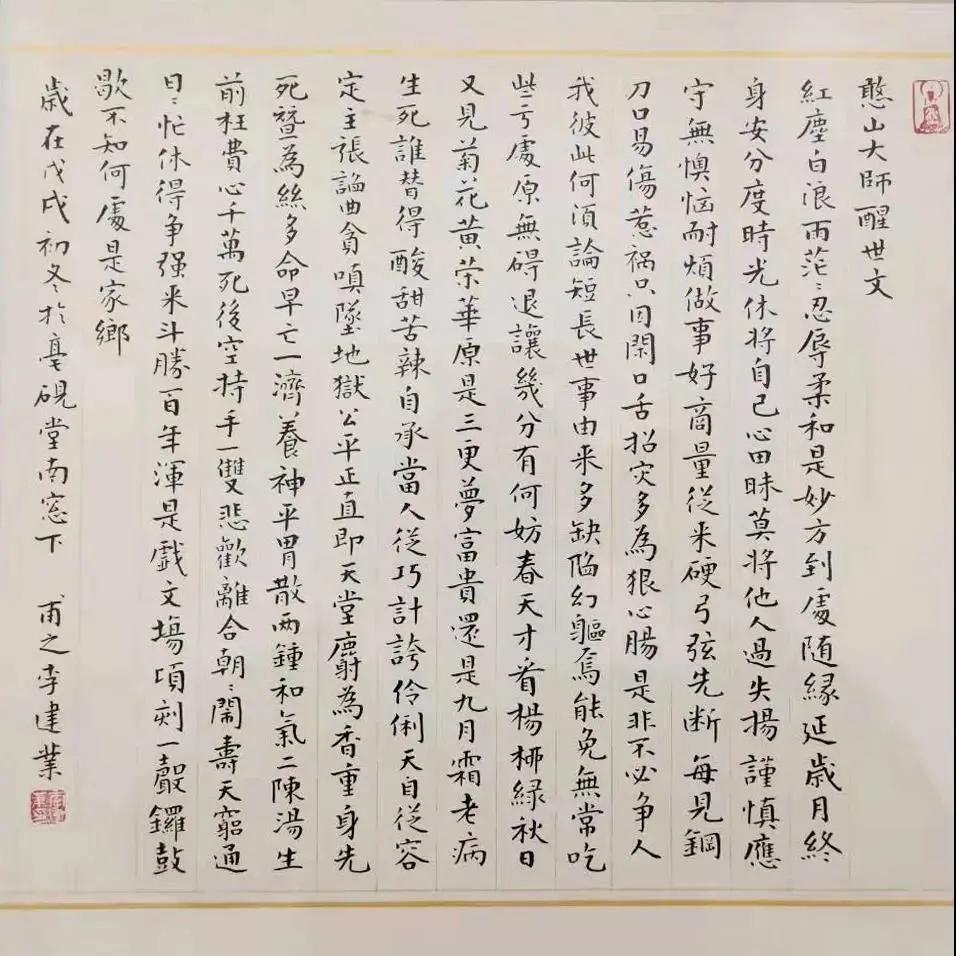 憨山大師醒世文
紅塵白浪两茫〻忍辱柔和是妙方到處随緣延歲月終
身安分度時光休將自己心田昧莫將他人過失揚謹慎應
守無懊恼耐煩做事好商量從来硬弓弦先断每見鋼
刀口易傷惹禍只因閑口舌招灾多為狠心腸是非不必争人
我彼此何須論短長世事由来多缺陷幻軀焉能免無常吃
些亏處原無碍退讓幾分有何妨春天才看楊柳緑秋日
又見菊花黄荣華原是三更夢富貴還是九月霜老病
生死誰替得酸甜苦辣自承當人從巧計誇伶俐天自從容
定主張諂曲貪嗔墜地獄公平正直即天堂麝為香重身先
死蠶為絲多命早亡一濟養神平胃散两鍾和氣二陳湯生
前枉費心千萬死後空持手一雙悲歡離合朝〻鬧壽夭窮通
日〻忙休得争强来斗勝百年渾是戲文場頃刻一聲鑼鼓
歇不知何處是家鄉
歲在戊戌初冬於亳硯堂南窓下 甫之李建業